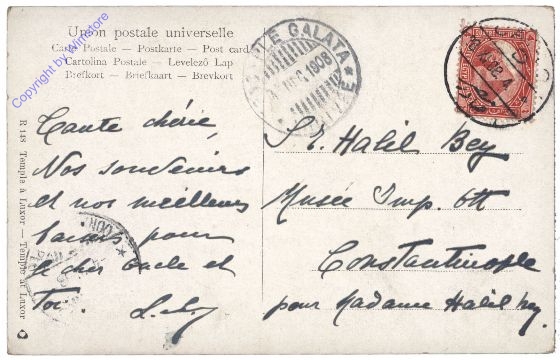 Union postale universelle
Carte Postale — Postkarte — Post card
Cartolina Postale — Levelező Lap
Brefkort — Briefkaart — Brevkort
Copyright by Winstore
GALATA
1908
R 148 Temple à Luxor — Temple at Luxor
Tante chérie,
Nos souvenirs
et nos meilleurs
pour
le cher oncle et
toi.
S. E. Halil Bey
Musée Imp. Ott
Constantinople
pour Madame Halil bey.